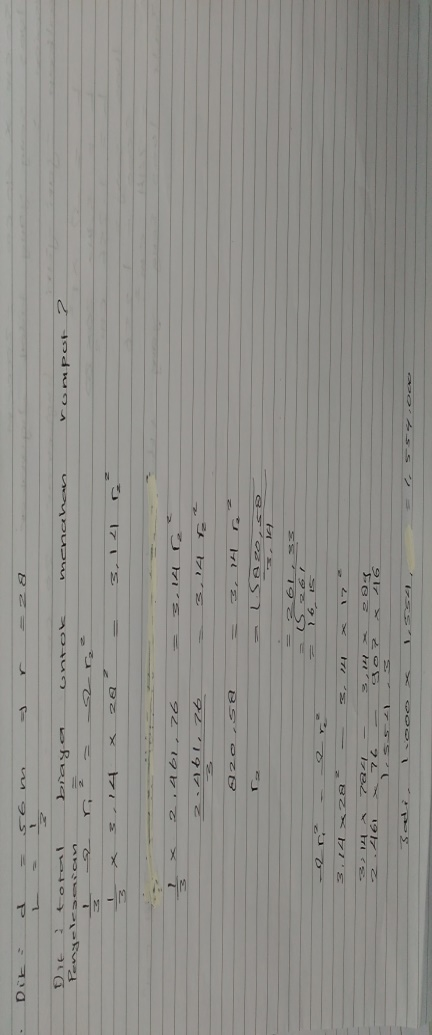 . Dik : d = 56 m → r = 28
L = 1/3
Dit : total biaya untuk menahan rumput ?
Penyelesaian
1/3 π r₁² = π r₂²
1/3 × 3,14 × 28² = 3,14 r₂²
1/3 × 2.461,76 = 3,14 r₂²
2.461,76 / 3 = 3,14 r₂²
820,58 = 3,14 r₂²
r₂ = √820,58 / 3,14
= 261,33
= √261
= 16,15
π r₁² - π r₂²
3,14 × 28² - 3,14 × 17²
3,14 × 784 - 3,14 × 289
2.461 × 76 - 907 × 46
1,554,3
Jadi, 1.000 × 1,554, = 1,554,000